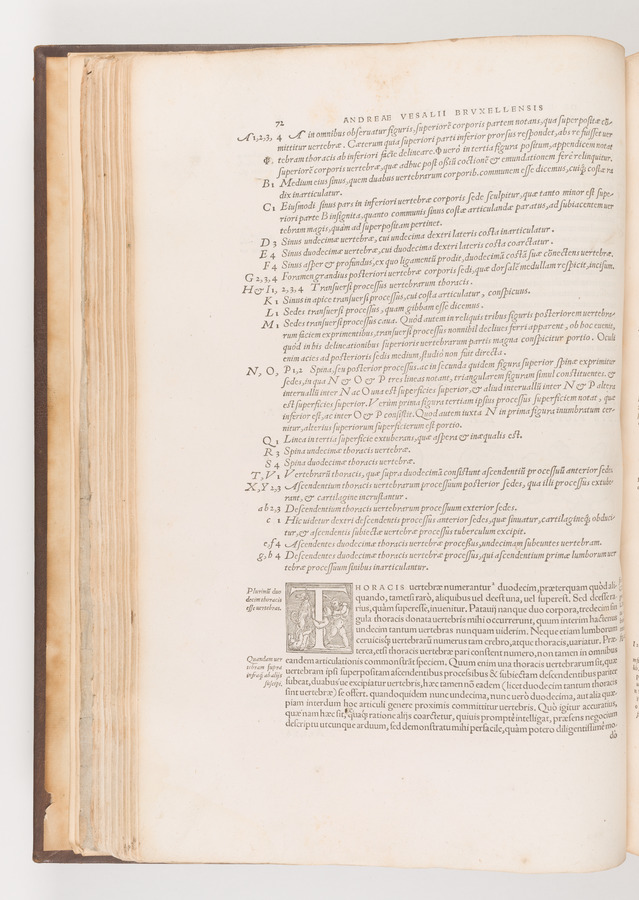 72 ANDREAE VESALII BRVXELLENSIS
A 1,2,3, 4 A in omnibus obseruatur figuris, superiorē corporis partem notans, qua superpositæ cō-
mittitur uertebræ. Cæterum quia superiori parti inferior prorsus respondet, abs re fuisset uer
Φ. tebram thoracis ab inferiori facie delineare. Φ uerò in tertia figura positum, appendicem notat
superiorē corporis uertebræ, quæ adhuc post ossiū coctionē & emundationem ferè relinquitur.
B 1 Medium eius sinus, quem duabus uertebrarum corporib. communem esse dicimus, cuiq́; costæ ra
dix inarticulatur.
C 1 Eiusmodi sinus pars in inferiori uertebræ corporis sede sculpitur, quæ tanto minor est supe-
riori parte B insignita, quanto communis sinus costæ articulandæ paratus, ad subiacentem uer
tebram magis, quàm ad superpositam pertinet.
D 3 Sinus undecimæ uertebræ, cui undecima dextri lateris costa inarticulatur.
E 4 Sinus duodecimæ uertebræ, cui duodecima dextri lateris costa coarctatur.
F 4 Sinus asper & profundus, ex quo ligamentū prodit, duodecimā costā suæ cōnectens uertebræ.
G 2,3,4 Foramen grandius posteriori uertebræ corporis sedi, quæ dorsalē medullam respicit, incisum.
H & I 1, 2, 3, 4 Transuersi processus uertebrarum thoracis.
K 1 Sinus in apice transuersi processus, cui costa articulatur, conspicuus.
L 1 Sedes transuersi processus, quam gibbam esse dicimus.
M 1 Sedes transuersi processus caua. Quòd autem in reliquis tribus figuris posteriorem uertebra-
rum faciem exprimentibus, transuersi processus nonnihil decliues ferri apparent, ob hoc euenit,
quòd in his delineationibus superioris uertebrarum partis magna conspicitur portio. Oculi
enim acies ad posterioris sedis medium, studiò non fuit directa.
N, O, P 1,2 Spina, seu posterior processus. ac in secunda quidem figura superior spinæ exprimitur
sedes, in qua N & O & P tres lineas notant, triangularem figuram simul constituentes. &
interuallū inter N ac O una est superficies superior, & aliud interuallū inter N & P altera
est superficies superior. Verùm prima figura tertiam ipsius processus superficiem notat, quæ
inferior est, ac inter O & P consistit. Quod autem iuxta N in prima figura inumbratum cer-
nitur, alterius superiorum superficierum est portio.
Q 1 Linea in tertia superficie extuberans, quæ aspera & inæqualis est.
R 3 Spina undecimæ thoracis uertebræ.
S 4 Spina duodecimæ thoracis uertebræ.
T, V 1 Vertebrarū thoracis, quæ supra duodecimā consistunt ascendentiū processuū anterior sedes.
X, Y 2,3 Ascendentium thoracis uertebrarum processuum posterior sedes, qua illi processus extube
rant, & cartilagine incrustantur.
a b 2,3 Descendentium thoracis uertebrarum processuum exterior sedes.
c 1 Hîc uidetur dextri descendentis processus anterior sedes, quæ sinuatur, cartilagineq́; obduci
tur, & ascendentis subiectæ uertebræ processus tuberculum excipit.
e, f 4 Ascendentes duodecimæ thoracis uertebræ processus, undecimam subeuntes uertebram.
g, h 4 Descendentes duodecimæ thoracis uertebræ processus, qui ascendentium primæ lumborum uer
tebræ processuum sinibus inarticulantur.
Plurimū duo
decim thoracis
esse uertebras.
THORACIS uertebræ numerantur duodecim, præterquam quòd ali-
quando, tametsi rarò, aliquibus uel deest una, uel superest. Sed deesse ra
rius, quàm superesse, inuenitur. Patauij nanque duo corpora, tredecim sin
gula thoracis donata uertebris mihi occurrerunt, quum interim hactenus
undecim tantum uertebras nunquam uiderim. Neque etiam lumborum
ceruicisq́; uertebrarū numerus tam crebro, atque thoracis, uariatur. Præ-
terea, etsi thoracis uertebræ pari constent numero, non tamen in omnibus
Quandam uer
tebram supra
infraq́; ab alijs
suscipi.
eandem articulationis commonstrāt speciem. Quum enim una thoracis uertebrarum sit, quæ
uertebram ipsi superpositam ascendentibus processibus & subiectam descendentibus pariter
subeat, duabusue excipiatur uertebris, hæc tamen nō eadem (licet duodecim tantum thoracis
sint uertebræ) se offert. quandoquidem nunc undecima, nunc uerò duodecima, aut alia quæ-
piam interdum hoc articuli genere proximis committitur uertebris. Quò igitur accuratius,
quæ nam hæc sit, quaq́; ratione alijs coarctetur, quiuis promptè intelligat, præsens negocium
descriptu utcunque arduum, sed demonstratu mihi perfacile, quàm potero diligentissimè mo-
dò